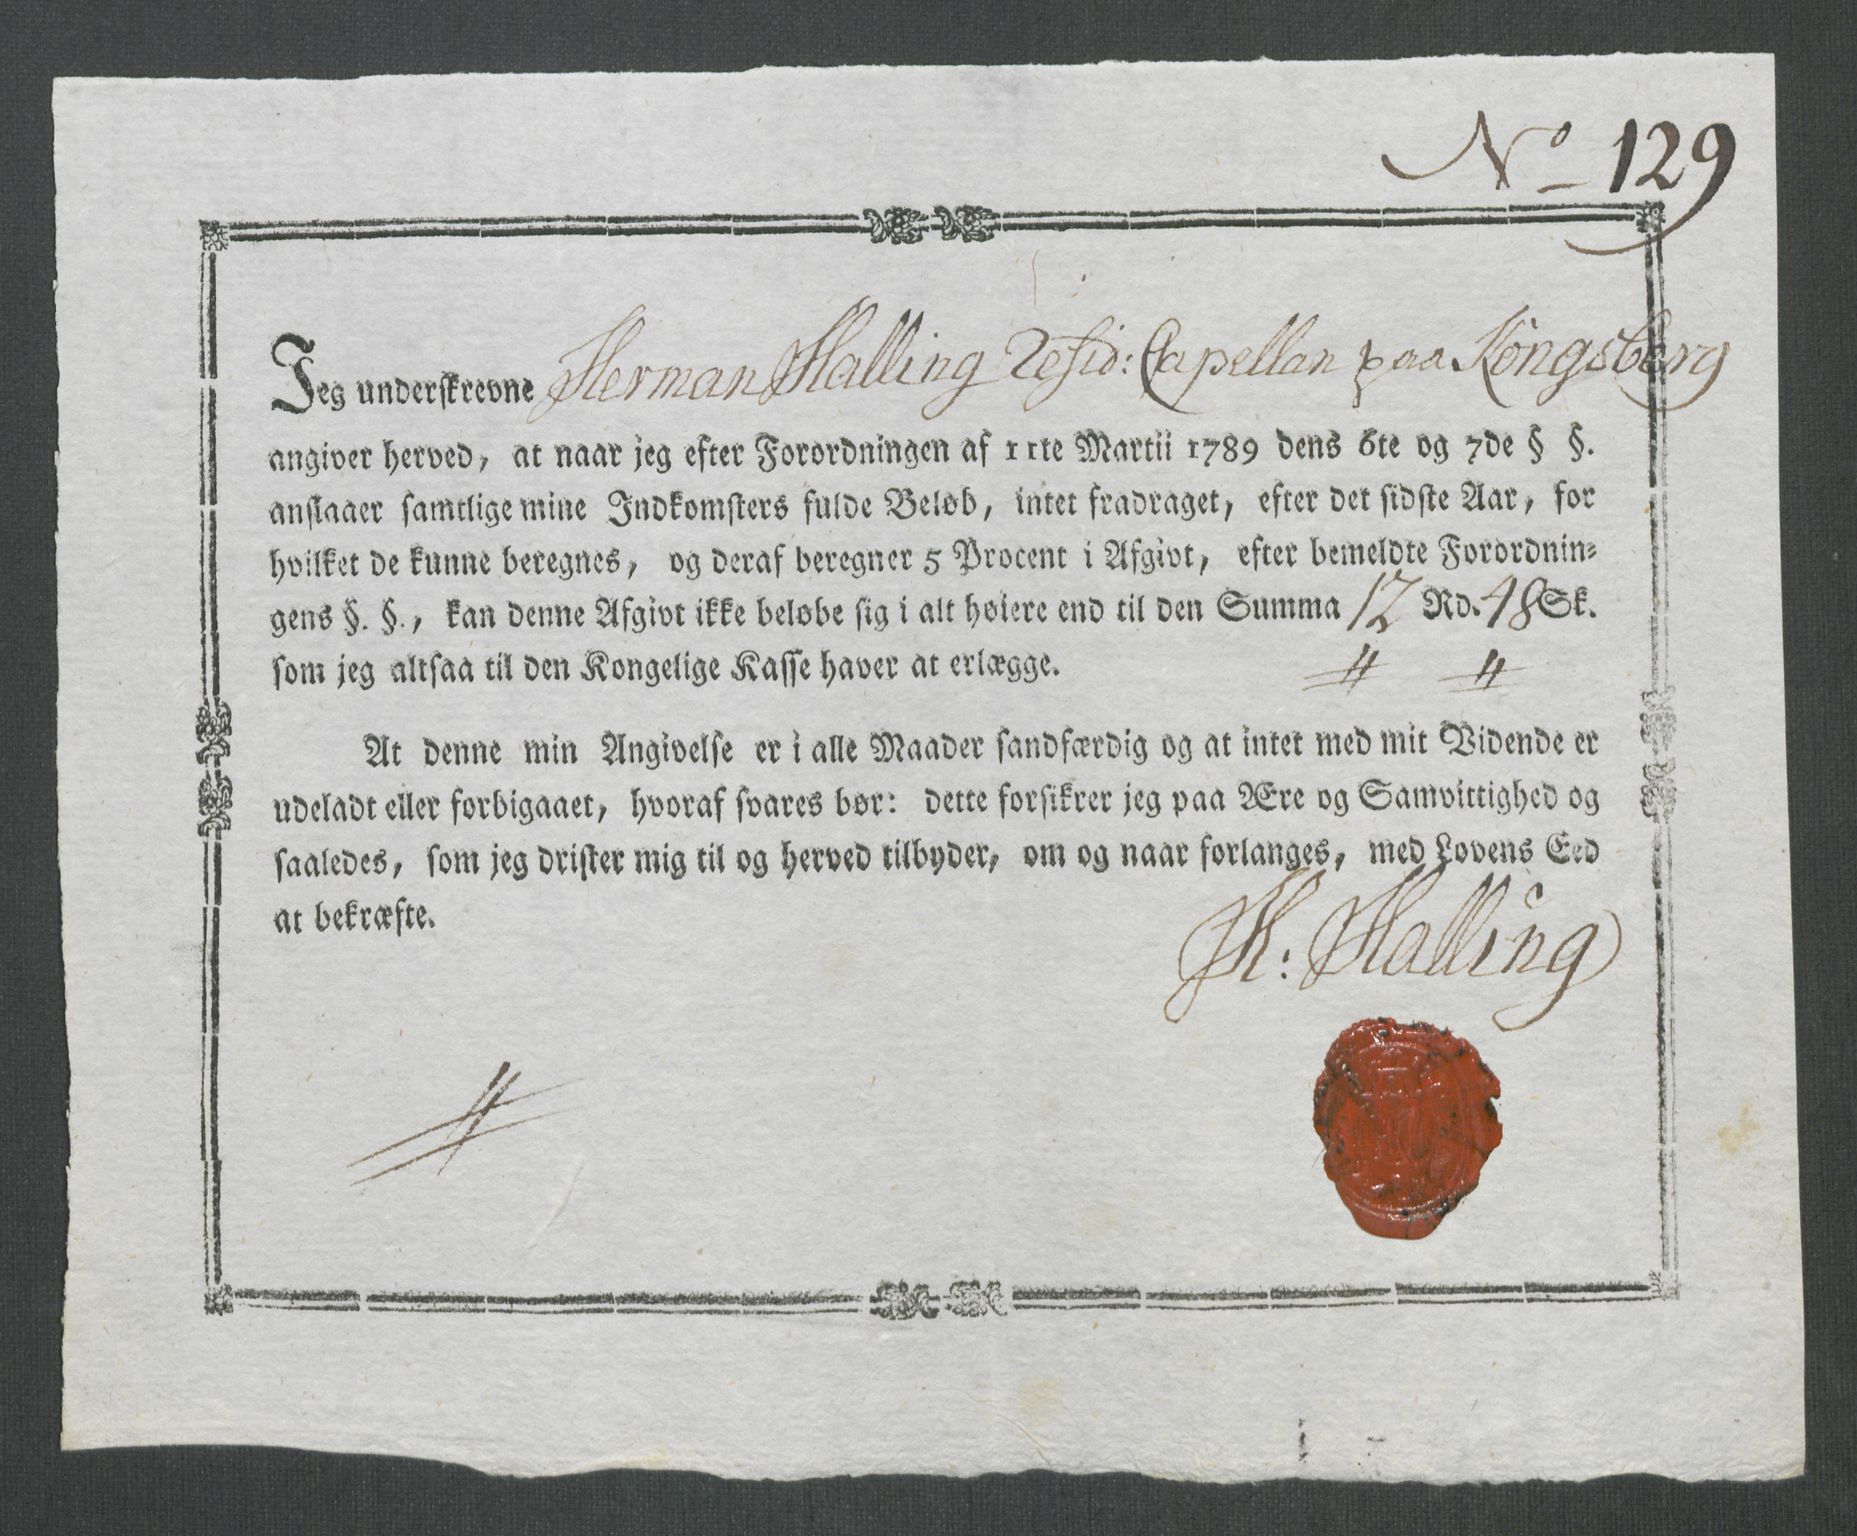 No 129
Jeg underskrevne Herman Halling Resid: Capellan paa Kongsberg
angiver herved, at naar jeg efter Forordningen af 11te Martii 1789 dens 6te og 7de § §.
anslaaer samtlige mine Indkomsters fulde Beløb, intet fradraget, efter det sidste Aar, for
hvilket de kunne beregnes, og deraf beregner 5 Procent i Afgivt, efter bemeldte Forordnin=
gens §. §., kan denne Afgivt ikke beløbe sig i alt høiere end til den Summa 12 Rd. 48 Sk.
som jeg altsaa til den Kongelige Kasse haver at erlægge.
At denne min Angivelse er i alle Maader sandfærdig og at intet med mit Vidende er
udeladt eller forbigaaet, hvoraf svares bør: dette forsikrer jeg paa Ære og Samvittighed og
saaledes, som jeg drister mig til og herved tilbyder, om og naar forlanges, med Lovens Eed
at bekræfte.
H: Halling